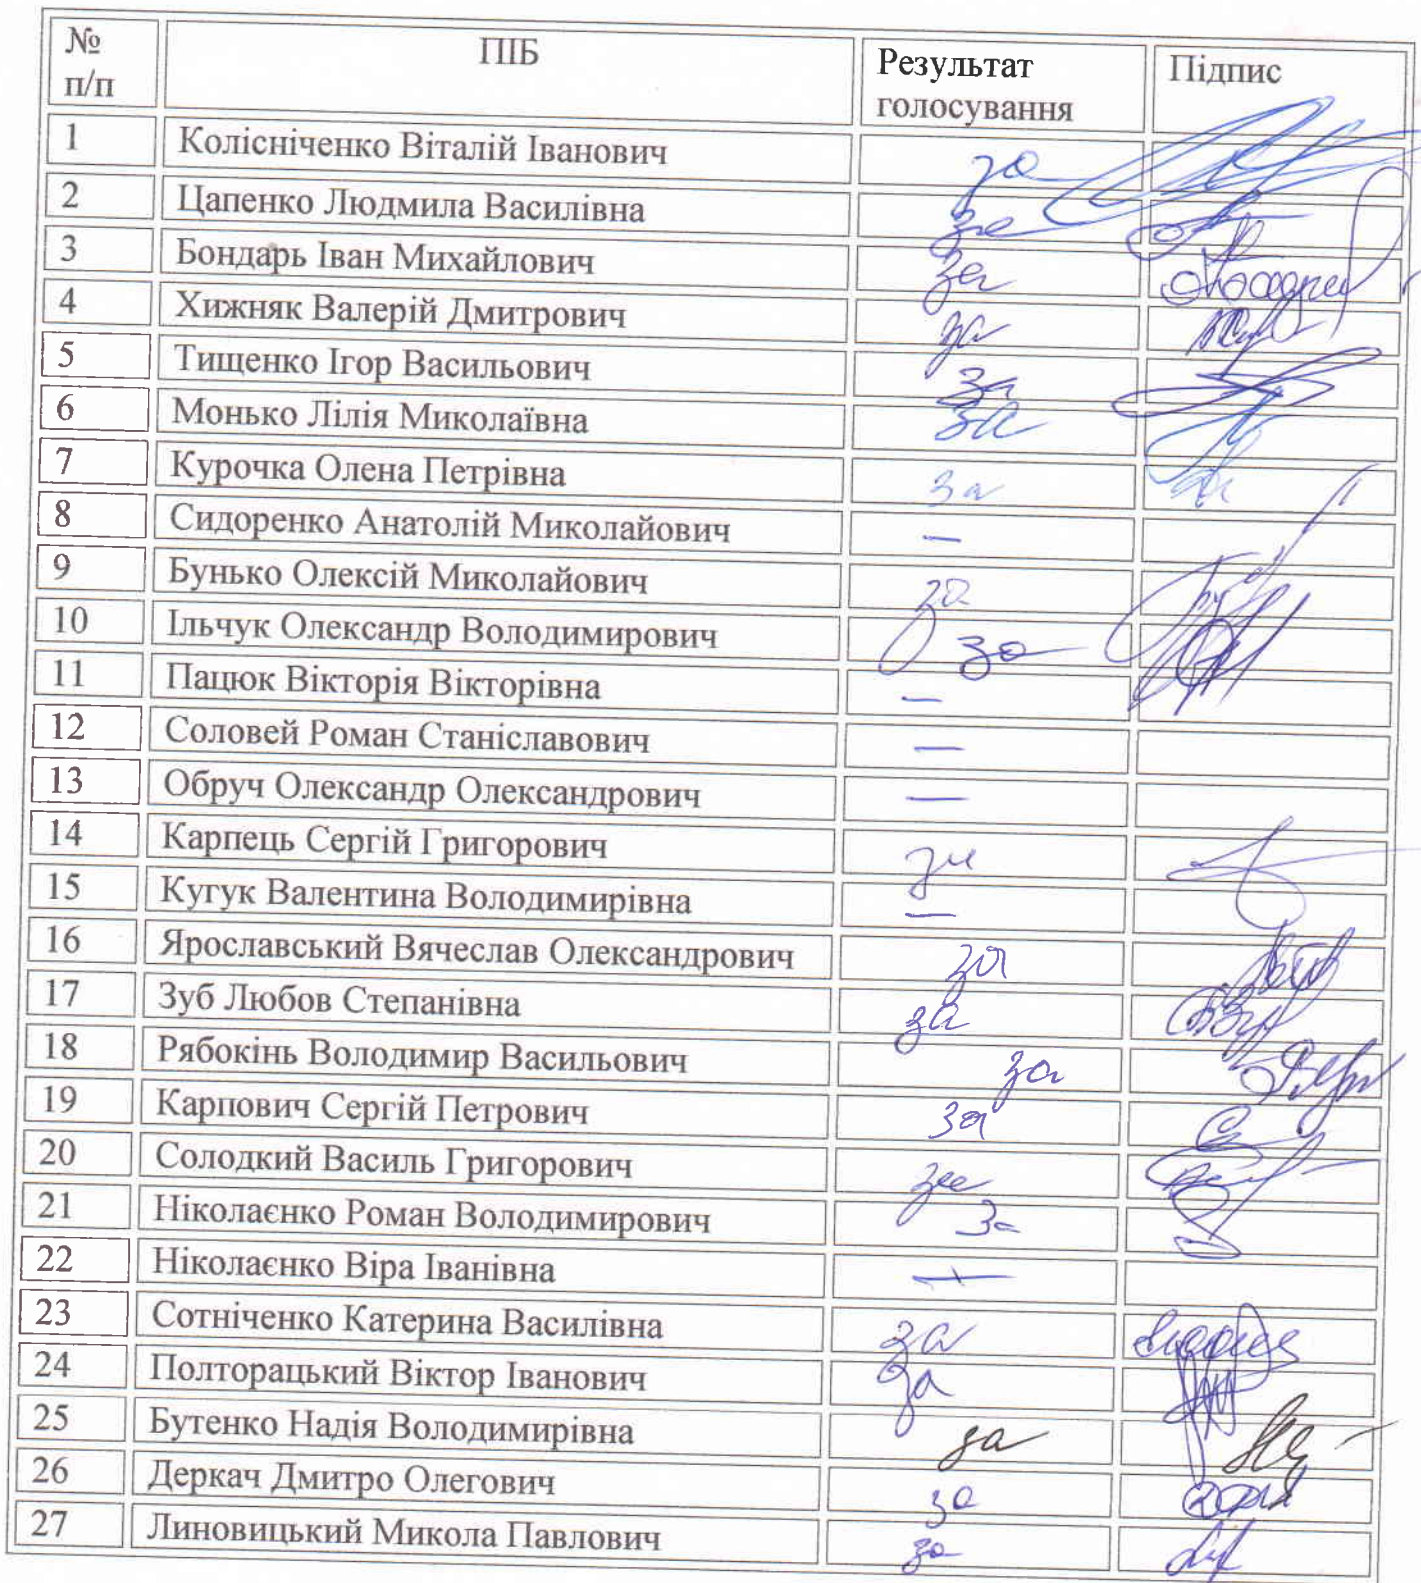 № п/п ПІБ Результат голосування Підпис
1 Колісніченко Віталій Іванович за
2 Цапенко Людмила Василівна за
3 Бондарь Іван Михайлович за
4 Хижняк Валерій Дмитрович за
5 Тищенко Ігор Васильович за
6 Монько Лілія Миколаївна за
7 Курочка Олена Петрівна за
8 Сидоренко Анатолій Миколайович —
9 Бунько Олексій Миколайович за
10 Ільчук Олександр Володимирович за
11 Пацюк Вікторія Вікторівна —
12 Соловей Роман Станіславович —
13 Обруч Олександр Олександрович —
14 Карпець Сергій Григорович за
15 Кугук Валентина Володимирівна —
16 Ярославський Вячеслав Олександрович за
17 Зуб Любов Степанівна за
18 Рябокінь Володимир Васильович за
19 Карпович Сергій Петрович за
20 Солодкий Василь Григорович за
21 Ніколаєнко Роман Володимирович за
22 Ніколаєнко Віра Іванівна —
23 Сотніченко Катерина Василівна за
24 Полторацький Віктор Іванович за
25 Бутенко Надія Володимирівна за
26 Деркач Дмитро Олегович за
27 Линовицький Микола Павлович за